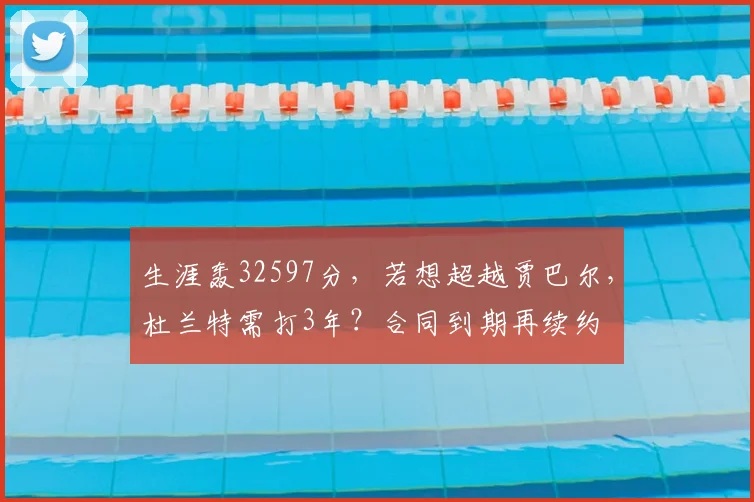 生涯轰32597分，若想超越贾巴尔，
杜兰特需打3年？合同到期再续约